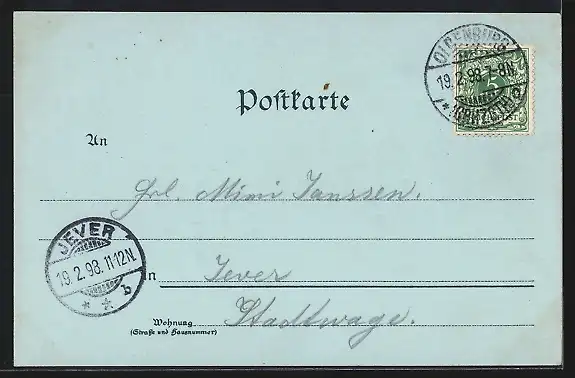 OLDENBURG
19.2.98.7-8N.
*(GRHZGTH)a
Postkarte
An
Frl. Mimi Janssen.
JEVER
19.2.98.11-12N.
* * b
in Jever
Wohnung Stadtwage.
(Straße und Hausnummer)